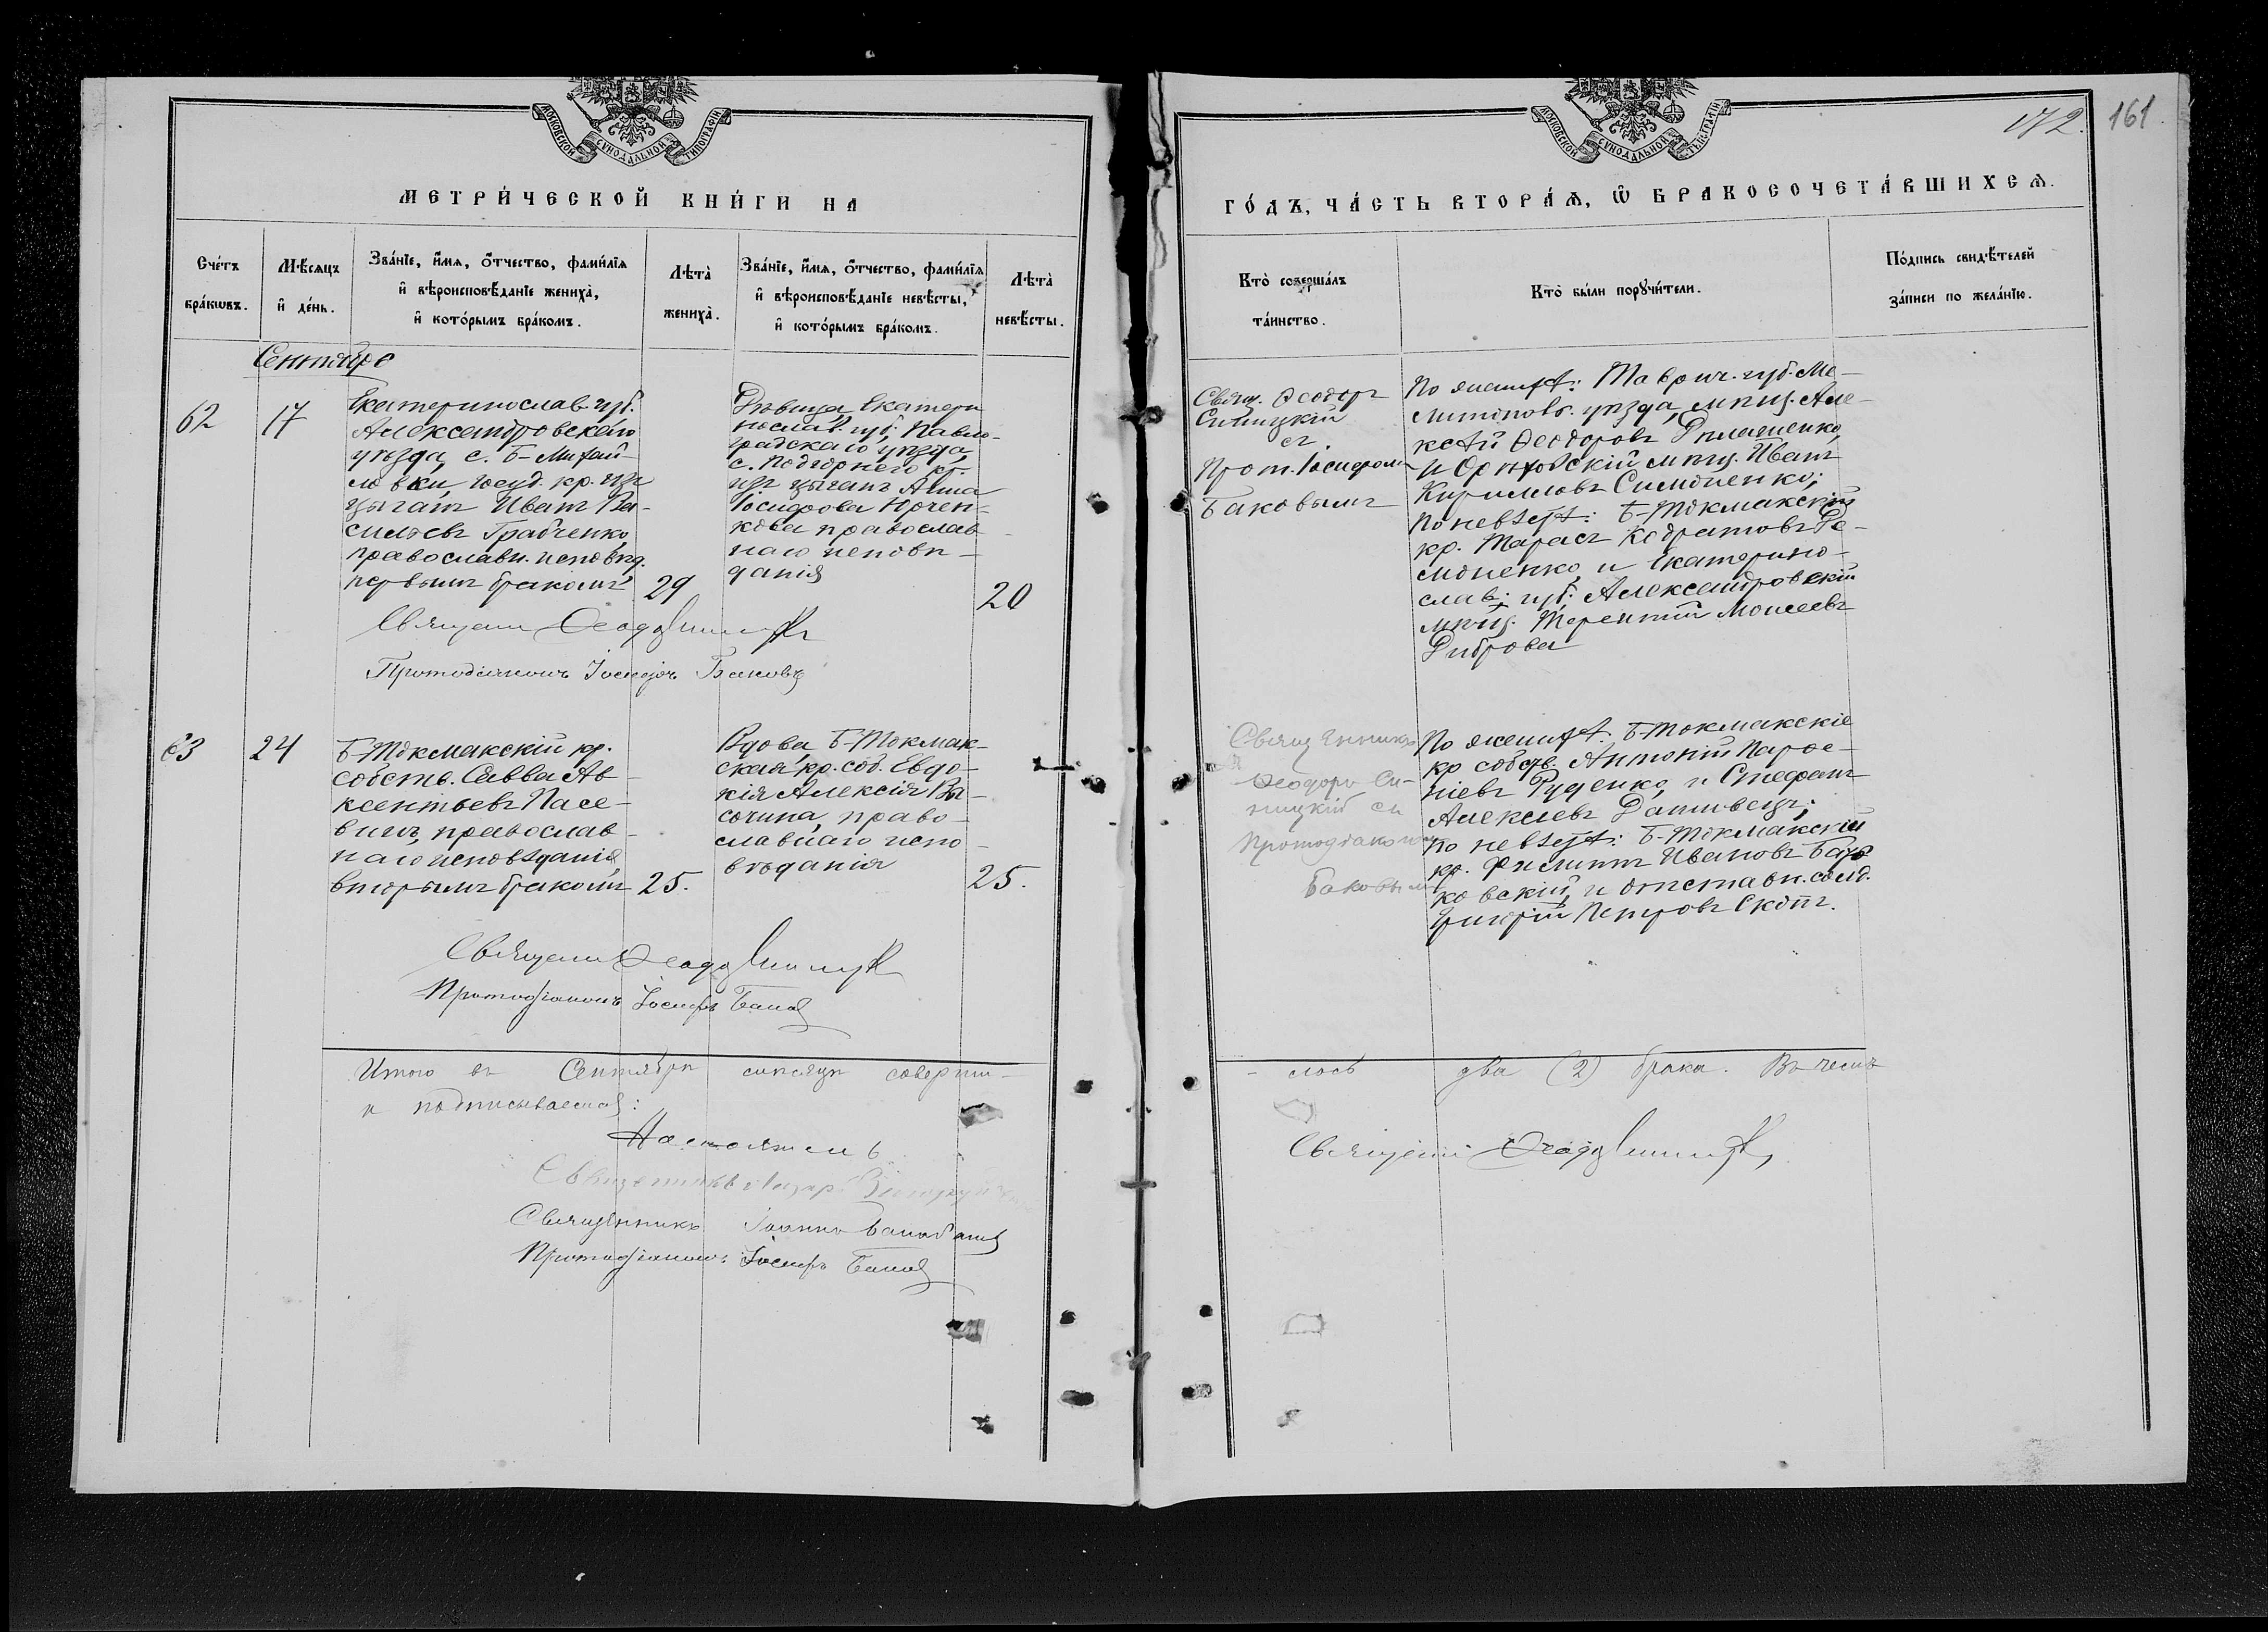 МОСКОВСКОЙ СѴНОДАЛЬНОЙ ТИПОГРАФІИ
МЕТРИ́ЧЕСКОЙ КНИ́ГИ НА
Сче́тъ
бра́кѡвъ.
Мѣ́сѧцъ
и҆ де́нь.
Зва́нїе, и҆́мѧ, ѻ҆́тчество, фами́лїѧ
и҆ вѣроисповѣ́данїе жениха̀,
и҆ кото́рымъ бра́комъ.
Лѣ́та̀
жениха̀.
Зва́нїе, и҆́мѧ, ѻ҆́тчество, фами́лїѧ
и҆ вѣроисповѣ́данїе невѣ́сты,
и҆ кото́рымъ бра́комъ.
Лѣ́та̀
невѣ́сты.
Сентябрь
62
17
Екатеринослав. губ.
Александровскаго
уѣзда, с. Б-Михай-
ловки, госуд. кр. изъ
цыганъ Иванъ Ва-
сильевъ Грабченко,
православн. исповѣд.
первымъ бракомъ
29
Дѣвица Екатери
нослав. губ. Павло-
градскаго уѣзда,
с. Подгорнего кр.
изъ цыганъ Анна
Іосифова Юрчен-
кова православ-
наго исповѣ-
данія
20
Священн Ѳеодо Синицк
Протодіаконъ Іосифъ Баковъ
63
24
Б-Токмакскій кр.
собств. Савва Ав-
ксентьевъ Пасе-
вичъ, православ-
наго исповѣданія
вторымъ бракомъ
25.
Вдова Б-Токмак-
ская кр. соб. Евдо-
кія Алексія Ва-
сочина, право-
славнаго испо-
вѣданія
25.
Священн Ѳеодо Синицк
Протодіаконъ Іосифъ Баков
Итого въ Сентябрѣ мѣсяцѣ соверши-
и подписываемся:
Настоятель
Священникъ Лазарь
Священникъ Іоаннъ
Протодіаконъ Іосифъ Баков
МОСКОВСКОЙ СѴНОДАЛЬНОЙ ТѴПОГРАФІИ
172. 161.
ГО́ДЪ, ЧА́СТЬ ВТОРА́Ѧ, Ѡ҆ БРАКОСОЧЕТА́ВШИХСѦ.
Кто̀ соверша́лъ
та́инство.
Кто̀ бы́ли порꙋчи́тели.
По́дпись свидѣ́телей
за́писи по жела́нїю.
Свящ. Ѳеодоръ
Синицкій
съ
Прот. Іосифомъ
Баковымъ
По женихѣ: Таврич. губ. Ме-
литоповс. уѣзда, мѣщ. Але-
ксѣй Ѳеодоровъ Дилашенко,
и Орѣховскій мѣщ. Иванъ
Кирилловъ Симоненко;
По невѣстѣ: Б-Токмакскій
кр. Тарасъ Кодратовъ Ре-
моненко, и Екатерино-
слав. губ. Александровскій
мѣщ. Терентій Моисеевъ
Диброва
Священникъ
Ѳеодоръ Си-
ницкій съ
Протодіакономъ
Баковымъ
По женихѣ: Б-Токмакскіе
кр собств. Антоній Парѳе-
ніевъ Руденко, и Стефанъ
Алексѣевъ Дашивецъ;
по невѣстѣ: Б-Токмакскій
кр. Филиппъ Ивановъ
ковскій, и отставн. солд.
Григорій Петровъ Скопъ.
- лось два (2) брака. Въ чемъ
Священн Ѳеодо Синицк